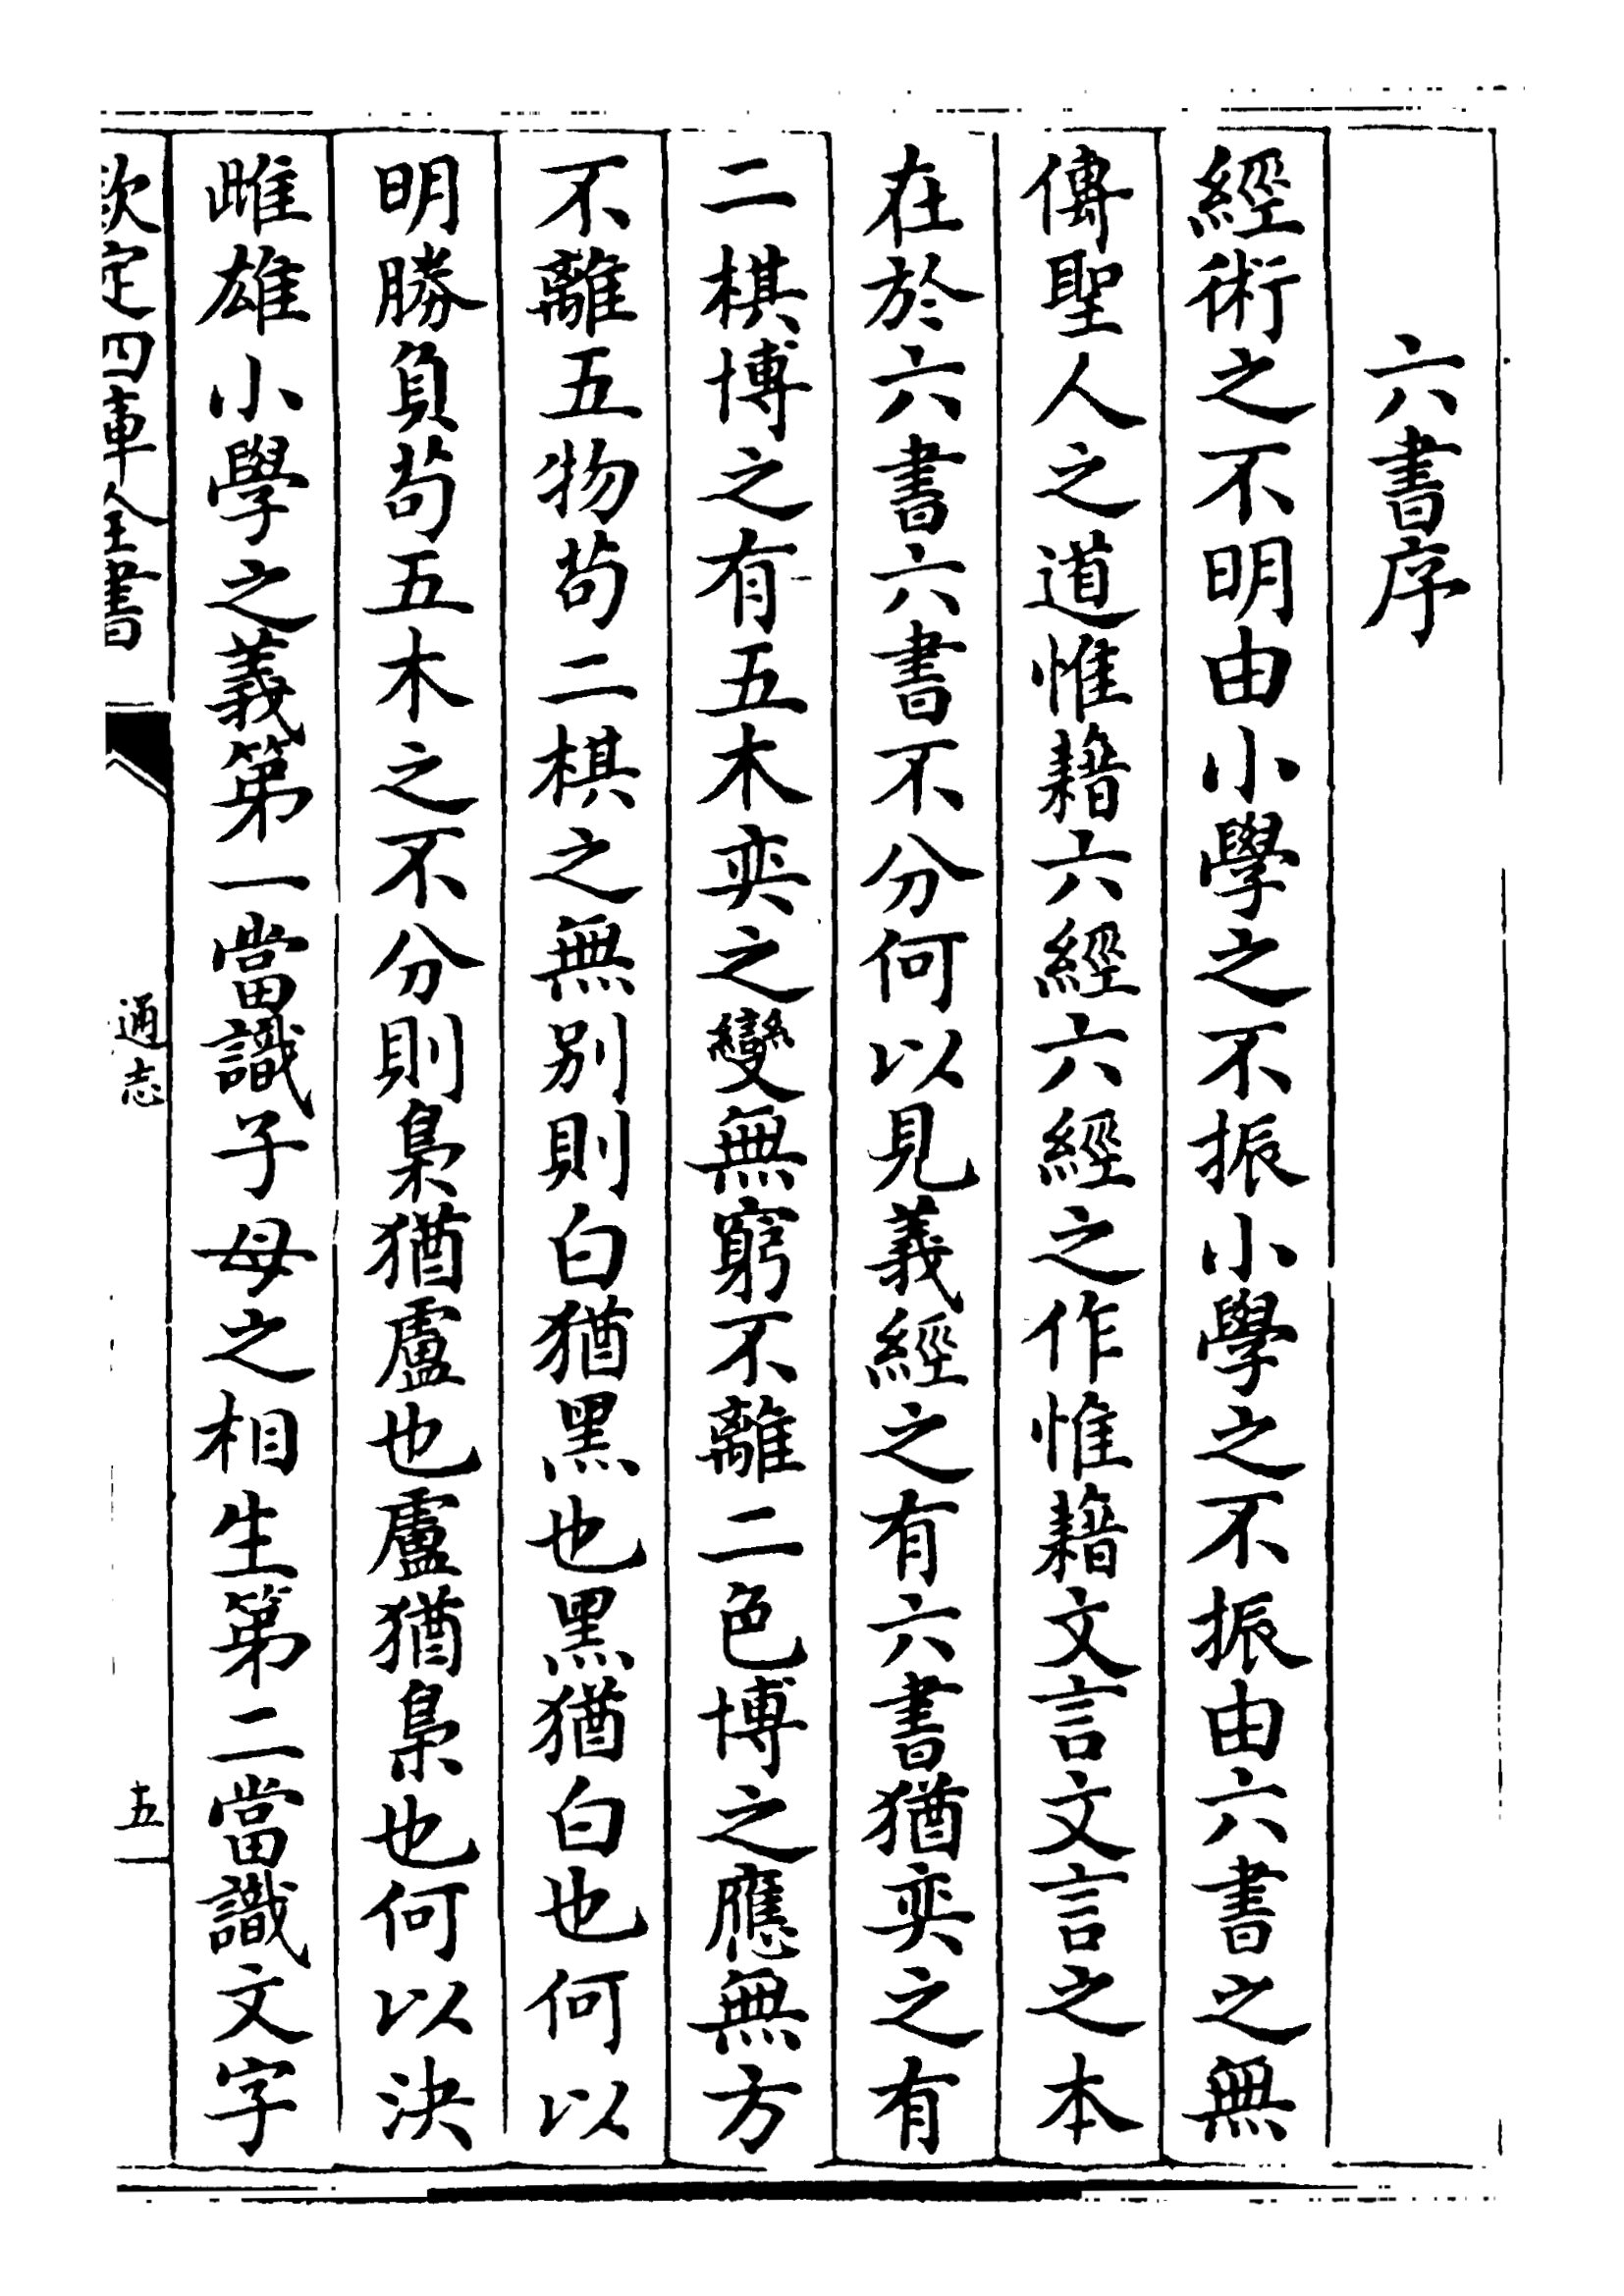 六書序
經術之不明由小學之不振小學之不振由六書之無
傳聖人之道惟藉六經六經之作惟藉文言文言之本
在於六書六書不分何以見義經之有六書猶奕之有
二棋博之有五木奕之變無窮不離二色博之應無方
不離五物茍二棋之無别則白猶黑也黑猶白也何以
明勝負茍五木之不分則梟猶盧也盧猶梟也何以決
雌雄小學之義第一當識子母之相生第二當識文字
欽定四庫全書
通志
五